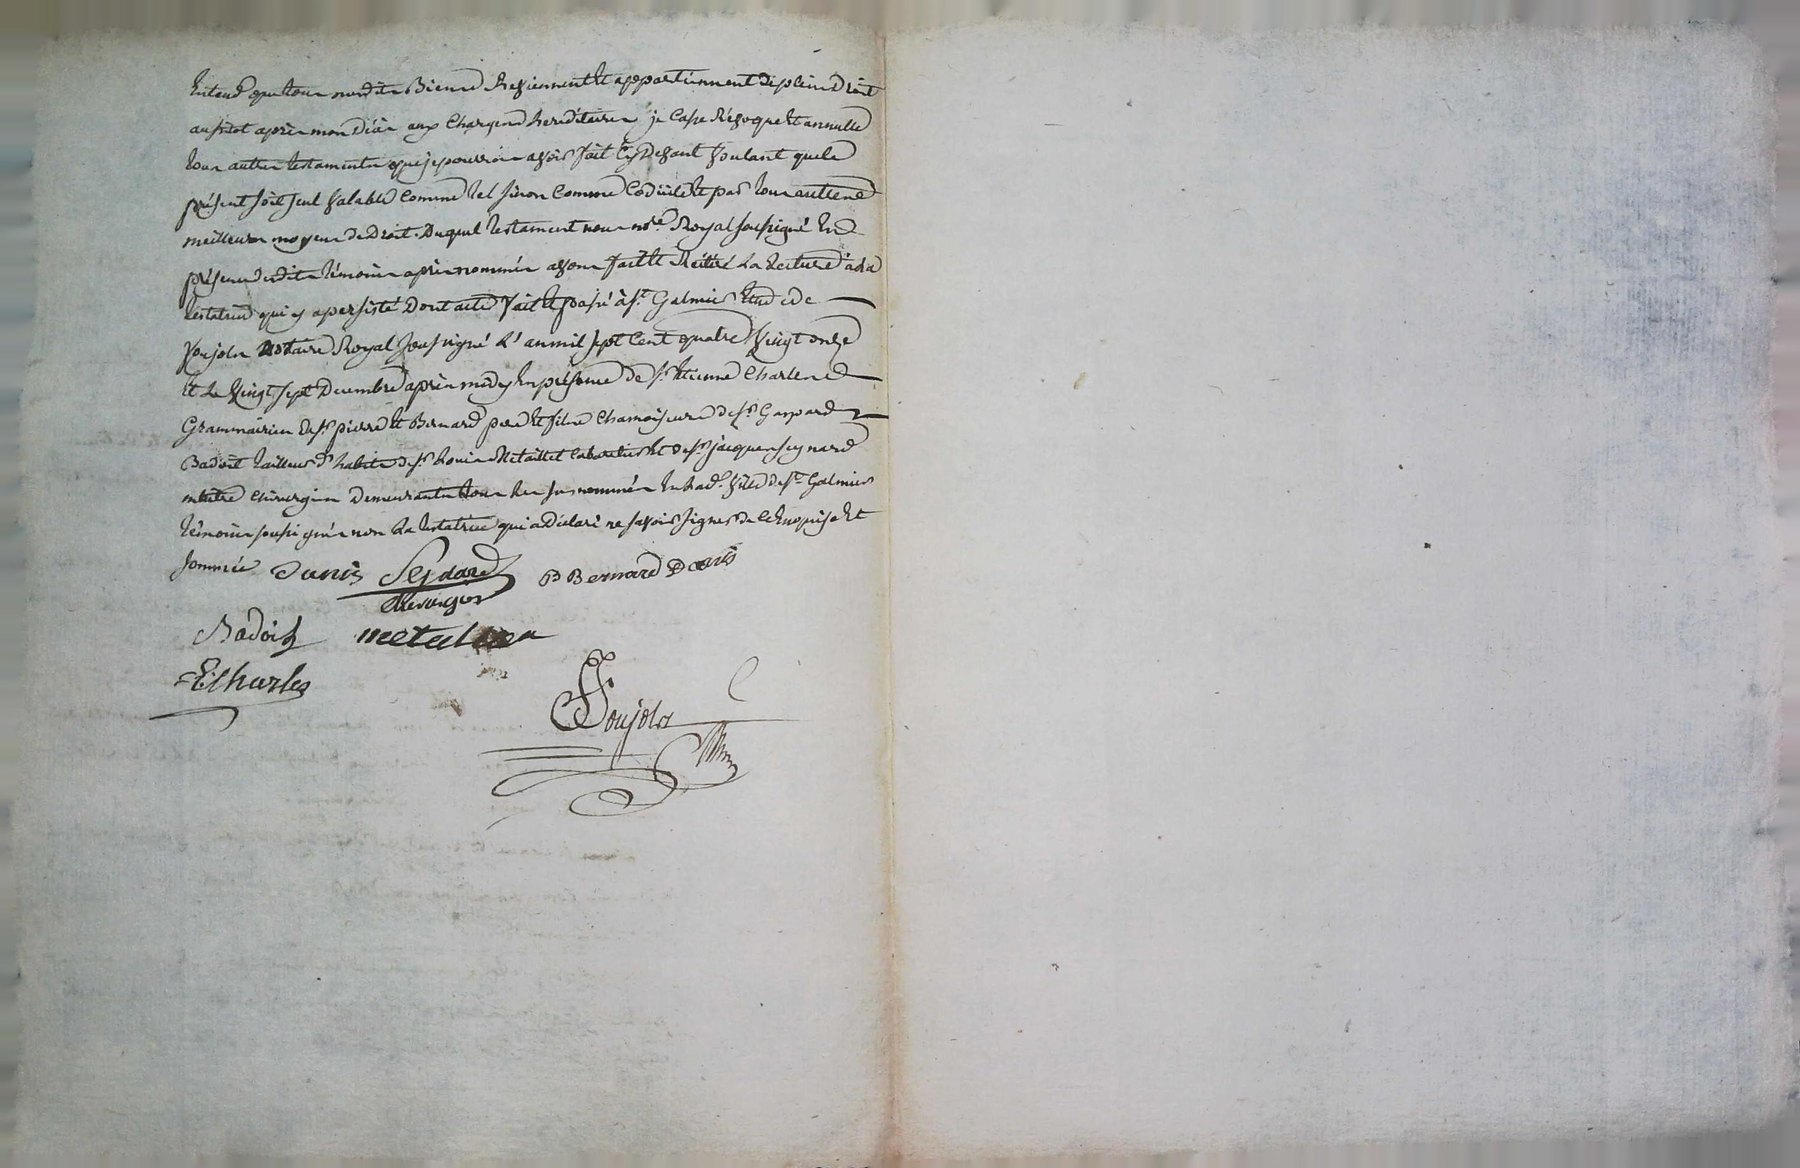 Entend que tous mesdits Biens Reviennent et appartiennent de plein Droit
aussitot après mon Décès aux Charges héréditaires je Casse Révoque et annulle
tous autres testaments que je pourrois avoir fait Cy Devant Voulant que le
présent soit seul Valable Comme tel sinon Comme Codicile et par tous autres
meilleurs moyens de Droit. Duquel testament nous nore Royal soussigné En
présence desdits témoins après nommés avons fait et Réitéré La Lecture à la
testatrice qui y a persisté Dont acte fait et passé à St Galmier Etude de
Voujola Notaire Royal soussigné L'an mil sept Cent quatre Vingt onze
et Le Vingt sept Decembre après midy En présence de Sr Etienne Charles
Grammairien de Srs pierre et Bernard pere et fils Chamoiseurs de Sr Gaspard
Badoit tailleur d'habits de Sr Louis Cabaretier et de Sr jacques Seynard
maitre chirurgien Demeurants tous les susnommés En lad. Ville de St Galmier
témoins soussignés non La testatrice qui a Déclaré ne savoir signer de Ce Enquise et
sommée Danis Seynard B Bernard Danis
Chirurgien
Badoit
E Charles
Voujola